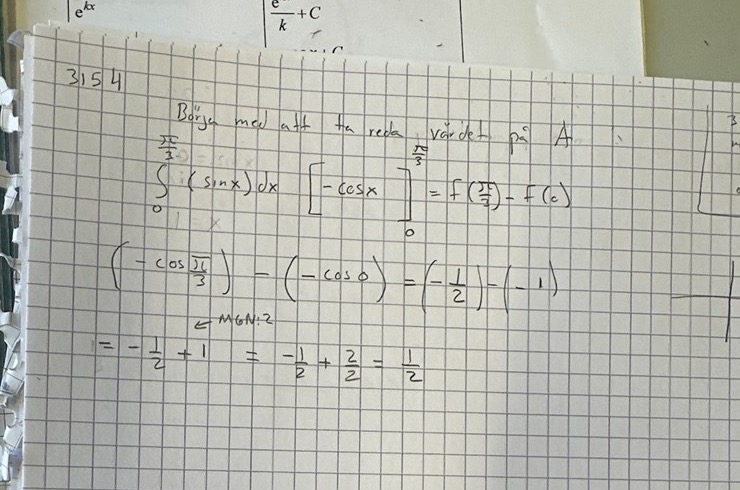 e^{kx}
k + C
3154
Börja med att ta reda värdet på A
∫_0^{π/3} (sinx) dx [-cosx]_0^{π/3} = f(π/3) - f(0)
(-cos π/3) - (-cos 0) = (-1/2) - (-1)
← MGN:2
= -1/2 + 1 = -1/2 + 2/2 = 1/2